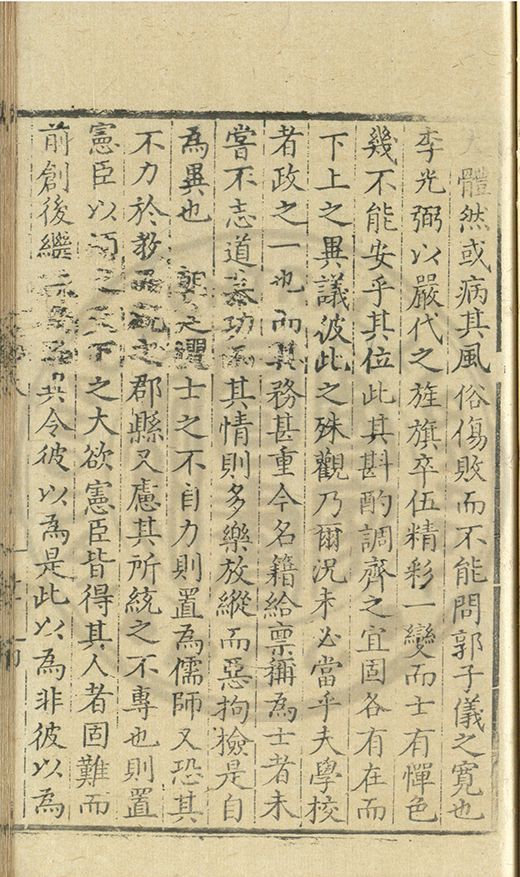 體然或病其風俗傷敗而不能問郭子儀之寬也
李光弼以嚴代之旌旗卒伍精彩一變而士有憚色
幾不能安乎其位此其斟酌調齊之宜固各有在而
下上之異議彼此之殊觀乃爾況未必當乎夫學校
者政之一也而其務甚重今名籍給稟稱為士者未
嘗不志道慕功其情則多樂放縱而惡拘檢是自
為異也謂士之不自力則置為儒師又恐其
不力於教之郡縣又慮其所統之不專也則置
憲臣以之下之大欲憲臣皆得其人者固難而
前創後繼共令彼以為是此以為非彼以為